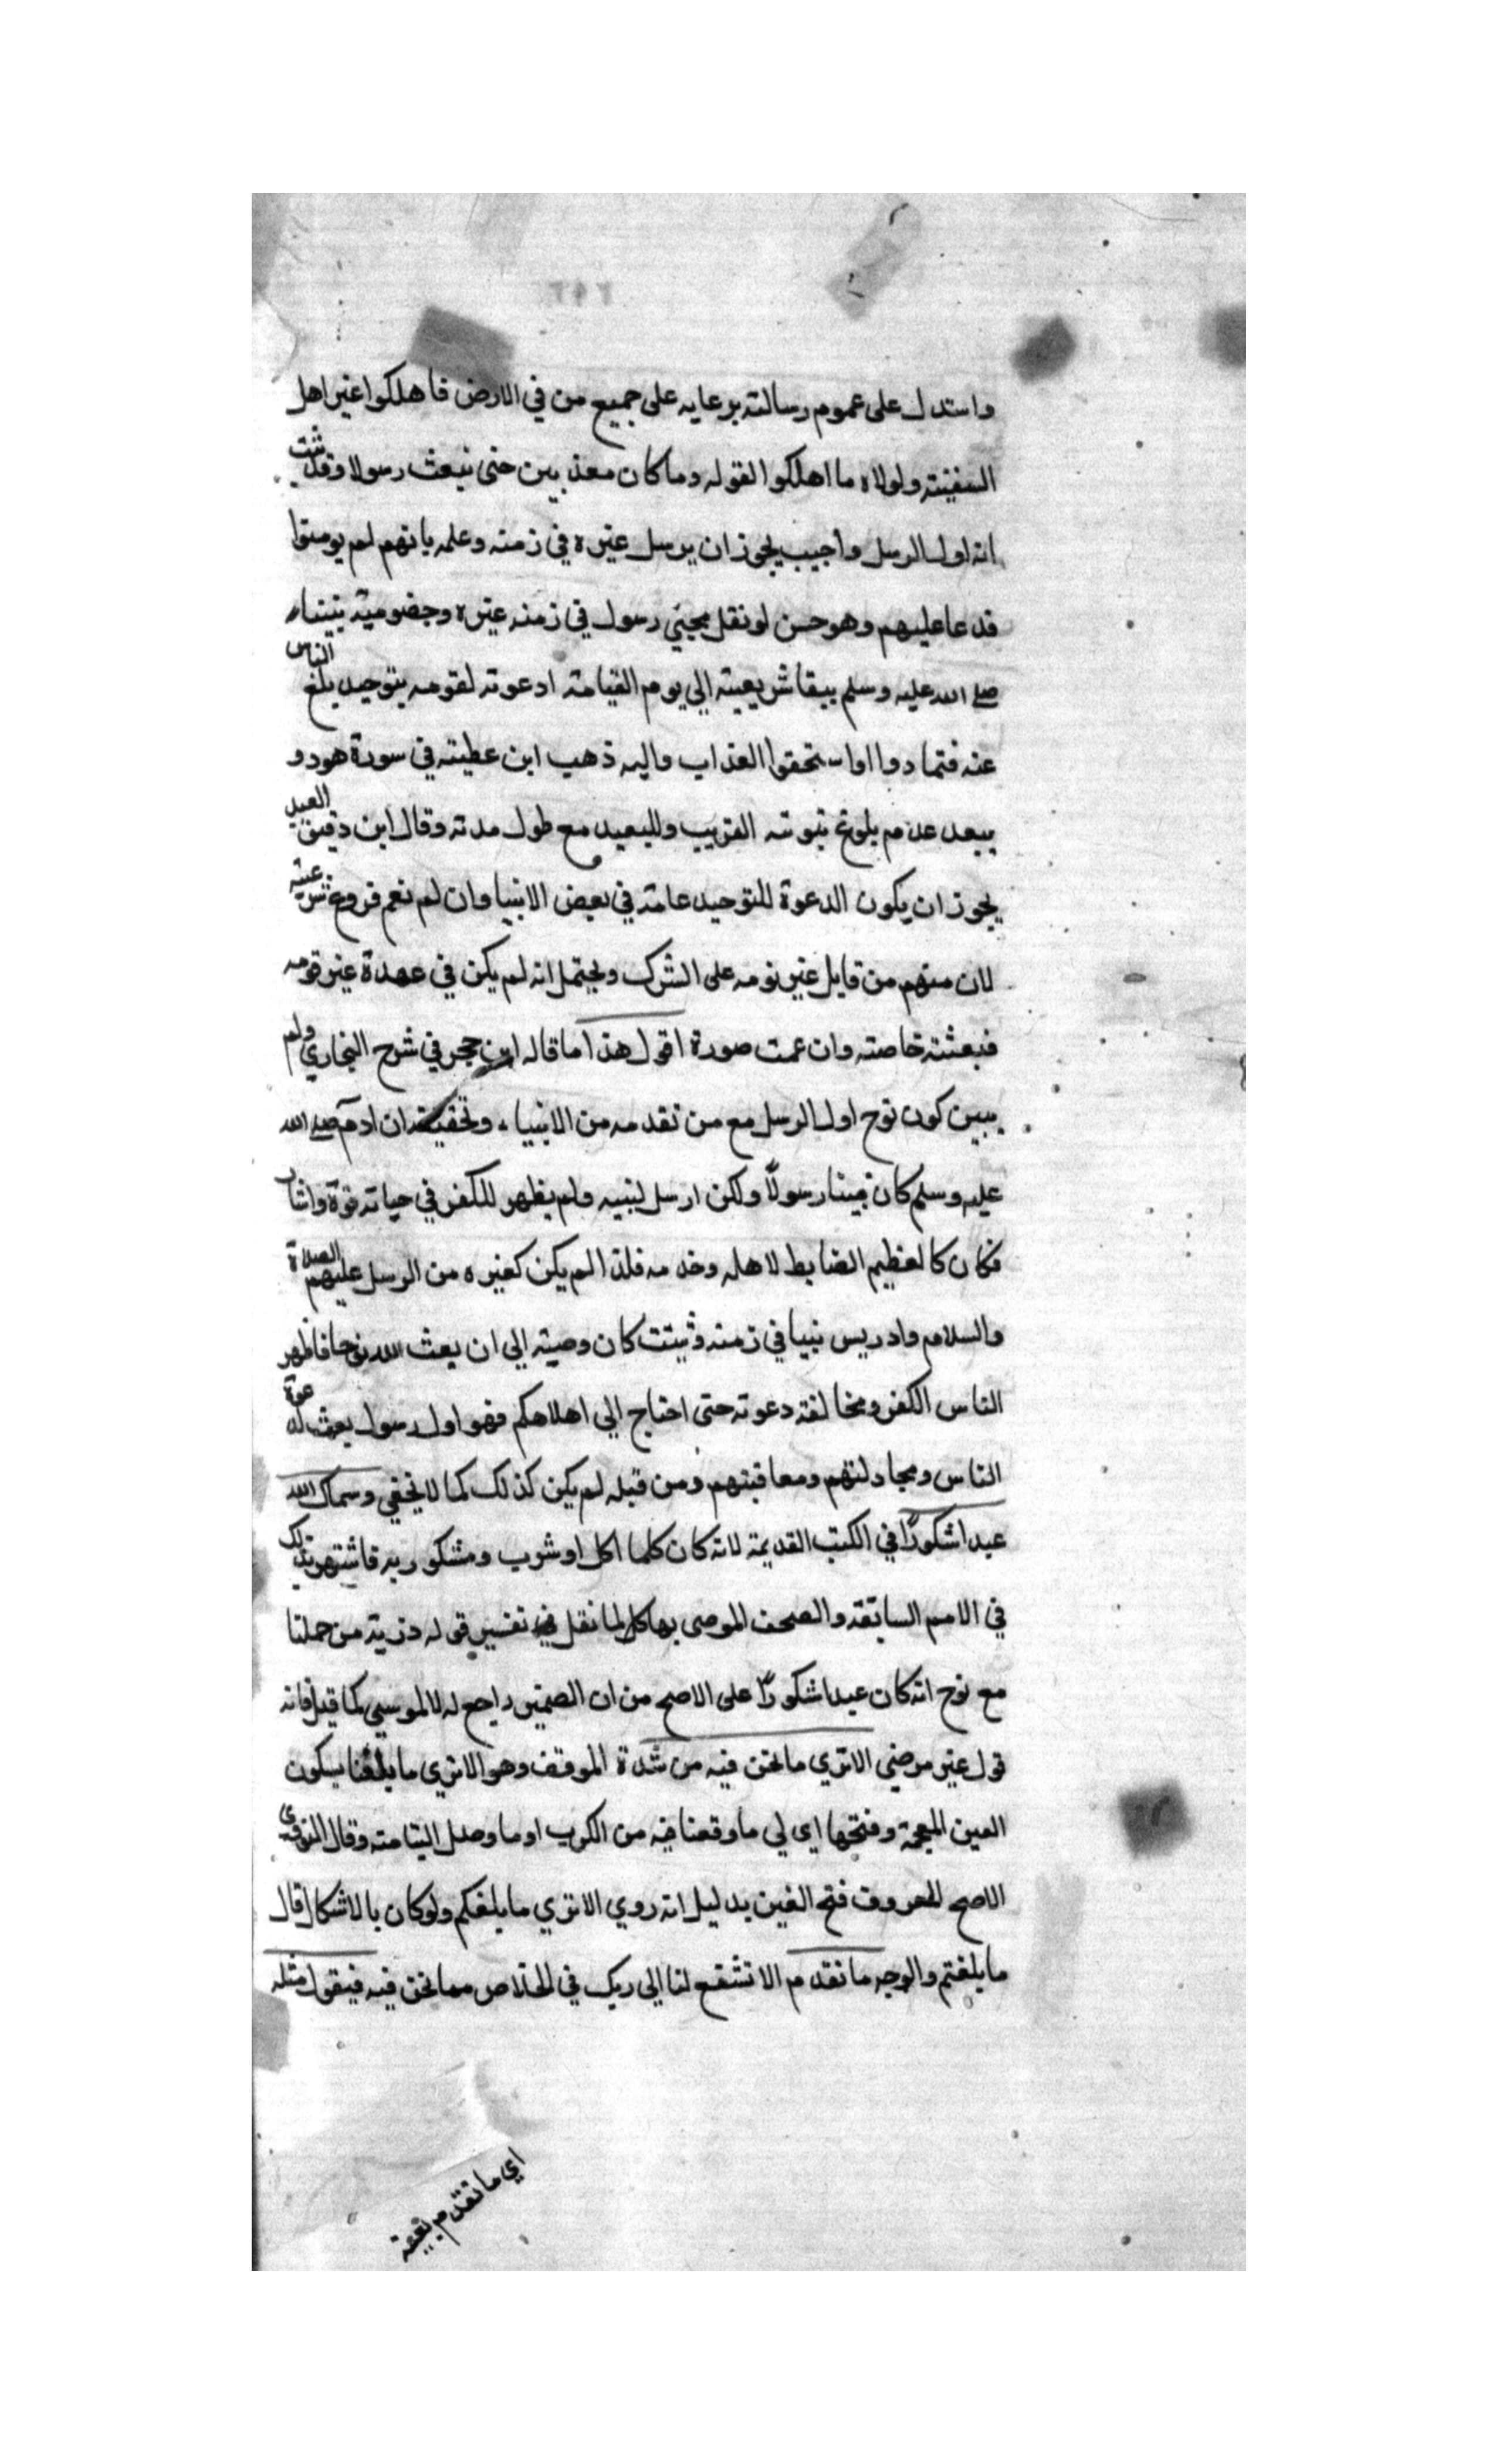 واستدل على عموم رسالته بدعايه على جميع من في الارض فاهلكوا غير اهل
السفينته ولولاه ما اهلكوا لقوله وما كان معذبين حتى نبعث رسولا وقد ثبت
انه اول الرسل واجيب يجوز ان يرسل غيره في زمنه وعلمه بانهم لم يومنوا
فدعا عليهم وهو حسن لو نقل مجيي رسول في زمنه غيره وخصومية نبينا
صلى الله عليه وسلم ببقا شريعته الي يوم القيامة ادعوته لقومه بتوحيد بلغ الناس
عنه فتمادوا واستحقوا العذاب واليه ذهب ابن عطيته في سورة هود و
يبعد عدم بلوغ نبوته القريب والبعيد مع طول مدته وقال ابن دقيق العيد
يجوز ان يكون الدعوة للتوحيد عامة في بعض الانبيا وان لم نعم فروع شرعيته
لان منهم من قايل غير نومه على الشرك ويحتمل انه لم يكن في عهدة غير قومه
فبعثته خاصته وان عمت صورة اقول هذا ما قاله ابن حجر في شرح البخاري ولم
يبين كون نوح اول الرسل مع من تقدمه من الانبياء وتحقيقه ان ادم صلى الله
عليه وسلم كان نبينا رسولاً ولكن ارسل لبنيه ولم يظهر للكفر في حياته قوة وانثار
فكان كالعظيم الضابط لاهله وخدمه فلذا لم يكن كغيره من الرسل عليهم الصلاة
والسلام وادريس نبيا في زمنه وثيتت كان وصيته الي ان يعث الله نوحا فاظهر
الناس الكفر ومخالفة دعوته حتى احتاج الي اهلاهكم فهو اول رسول يعث لدعوة
الناس ومجادلتهم ومعاقبتهم ومن قبله لم يكن كذلك كما لا يخفي وسماك الله
عبدا شكورًا في الكتب القديمة لانه كان كلما اكل او شرب ومشكوربه فاشتهر بذلك
في الامم السابقة والصحف الموصى بها كل لما نقل في تفسير قوله ذرية من حملنا
مع نوح انه كان عبدا شكورًا على الاصح من ان الضمير راجع له لا لموسي كما قيل فانه
قول غير مرضي الا تري ما نحن فيه من شدة الموقف وهو الا تري ما بلغنا بسكون
الغين المعجمة وفتحها اي لي ما وقعنا فيه من الكرب او ما وصل الينا منه وقال النووي
الاصح المعروف فتح الغين بدليل انه روي الا تري ما بلغكم ولو كان بالاشكال لقال
ما بلغتم والوجه ما تقدم الا تشفع لنا الي ربك في الخلاص مما نحن فيه فيقول مثله
اي ما تقدم بقيته